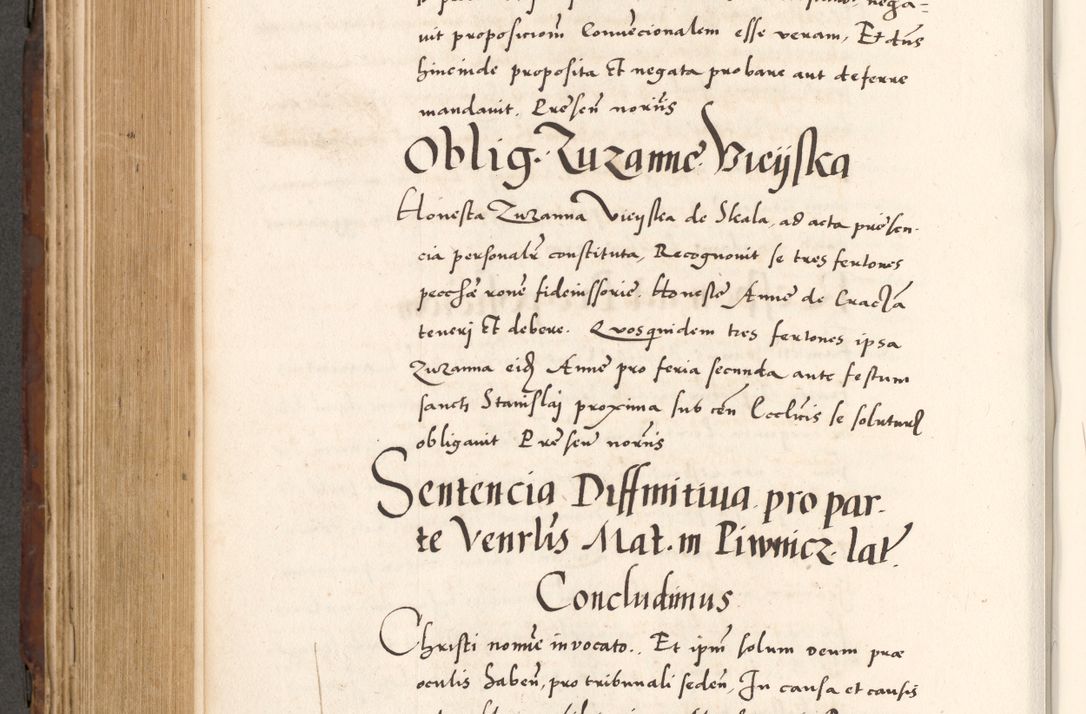 uit proposiciom̄ Conuēcionalem esse veram, Et dn̄s
hincinde proposita Et negata probare aut deferre
mandauit. Presen̄ norīis
Oblig. Zuzanne Vieyska
Honesta Zuzanna Vieyska de Skala, ad acta presen-
cia personalr̄ constituta, Recognouit se tres fertones
pecchȩ ronē fideiussorie. Honeste Anne de Crac
teneri Et debere. Quosquidem tres fertones ipsa
Zuzanna eid Anne pro feria secunda ante festum
sancti Stanislaj proxima sub cen̄ Eccl̄icis se soluturā
obligauit Presen̄ norīis
Sentencia Diffinitiua pro par-
te Venrl̄is Mat. m Piwnicz lat.
Concludimus
Christi nomīe inuocato. Et ipm̄ solum deum præ
oculis haben̄, pro tribunali seden̄, In causa et causis